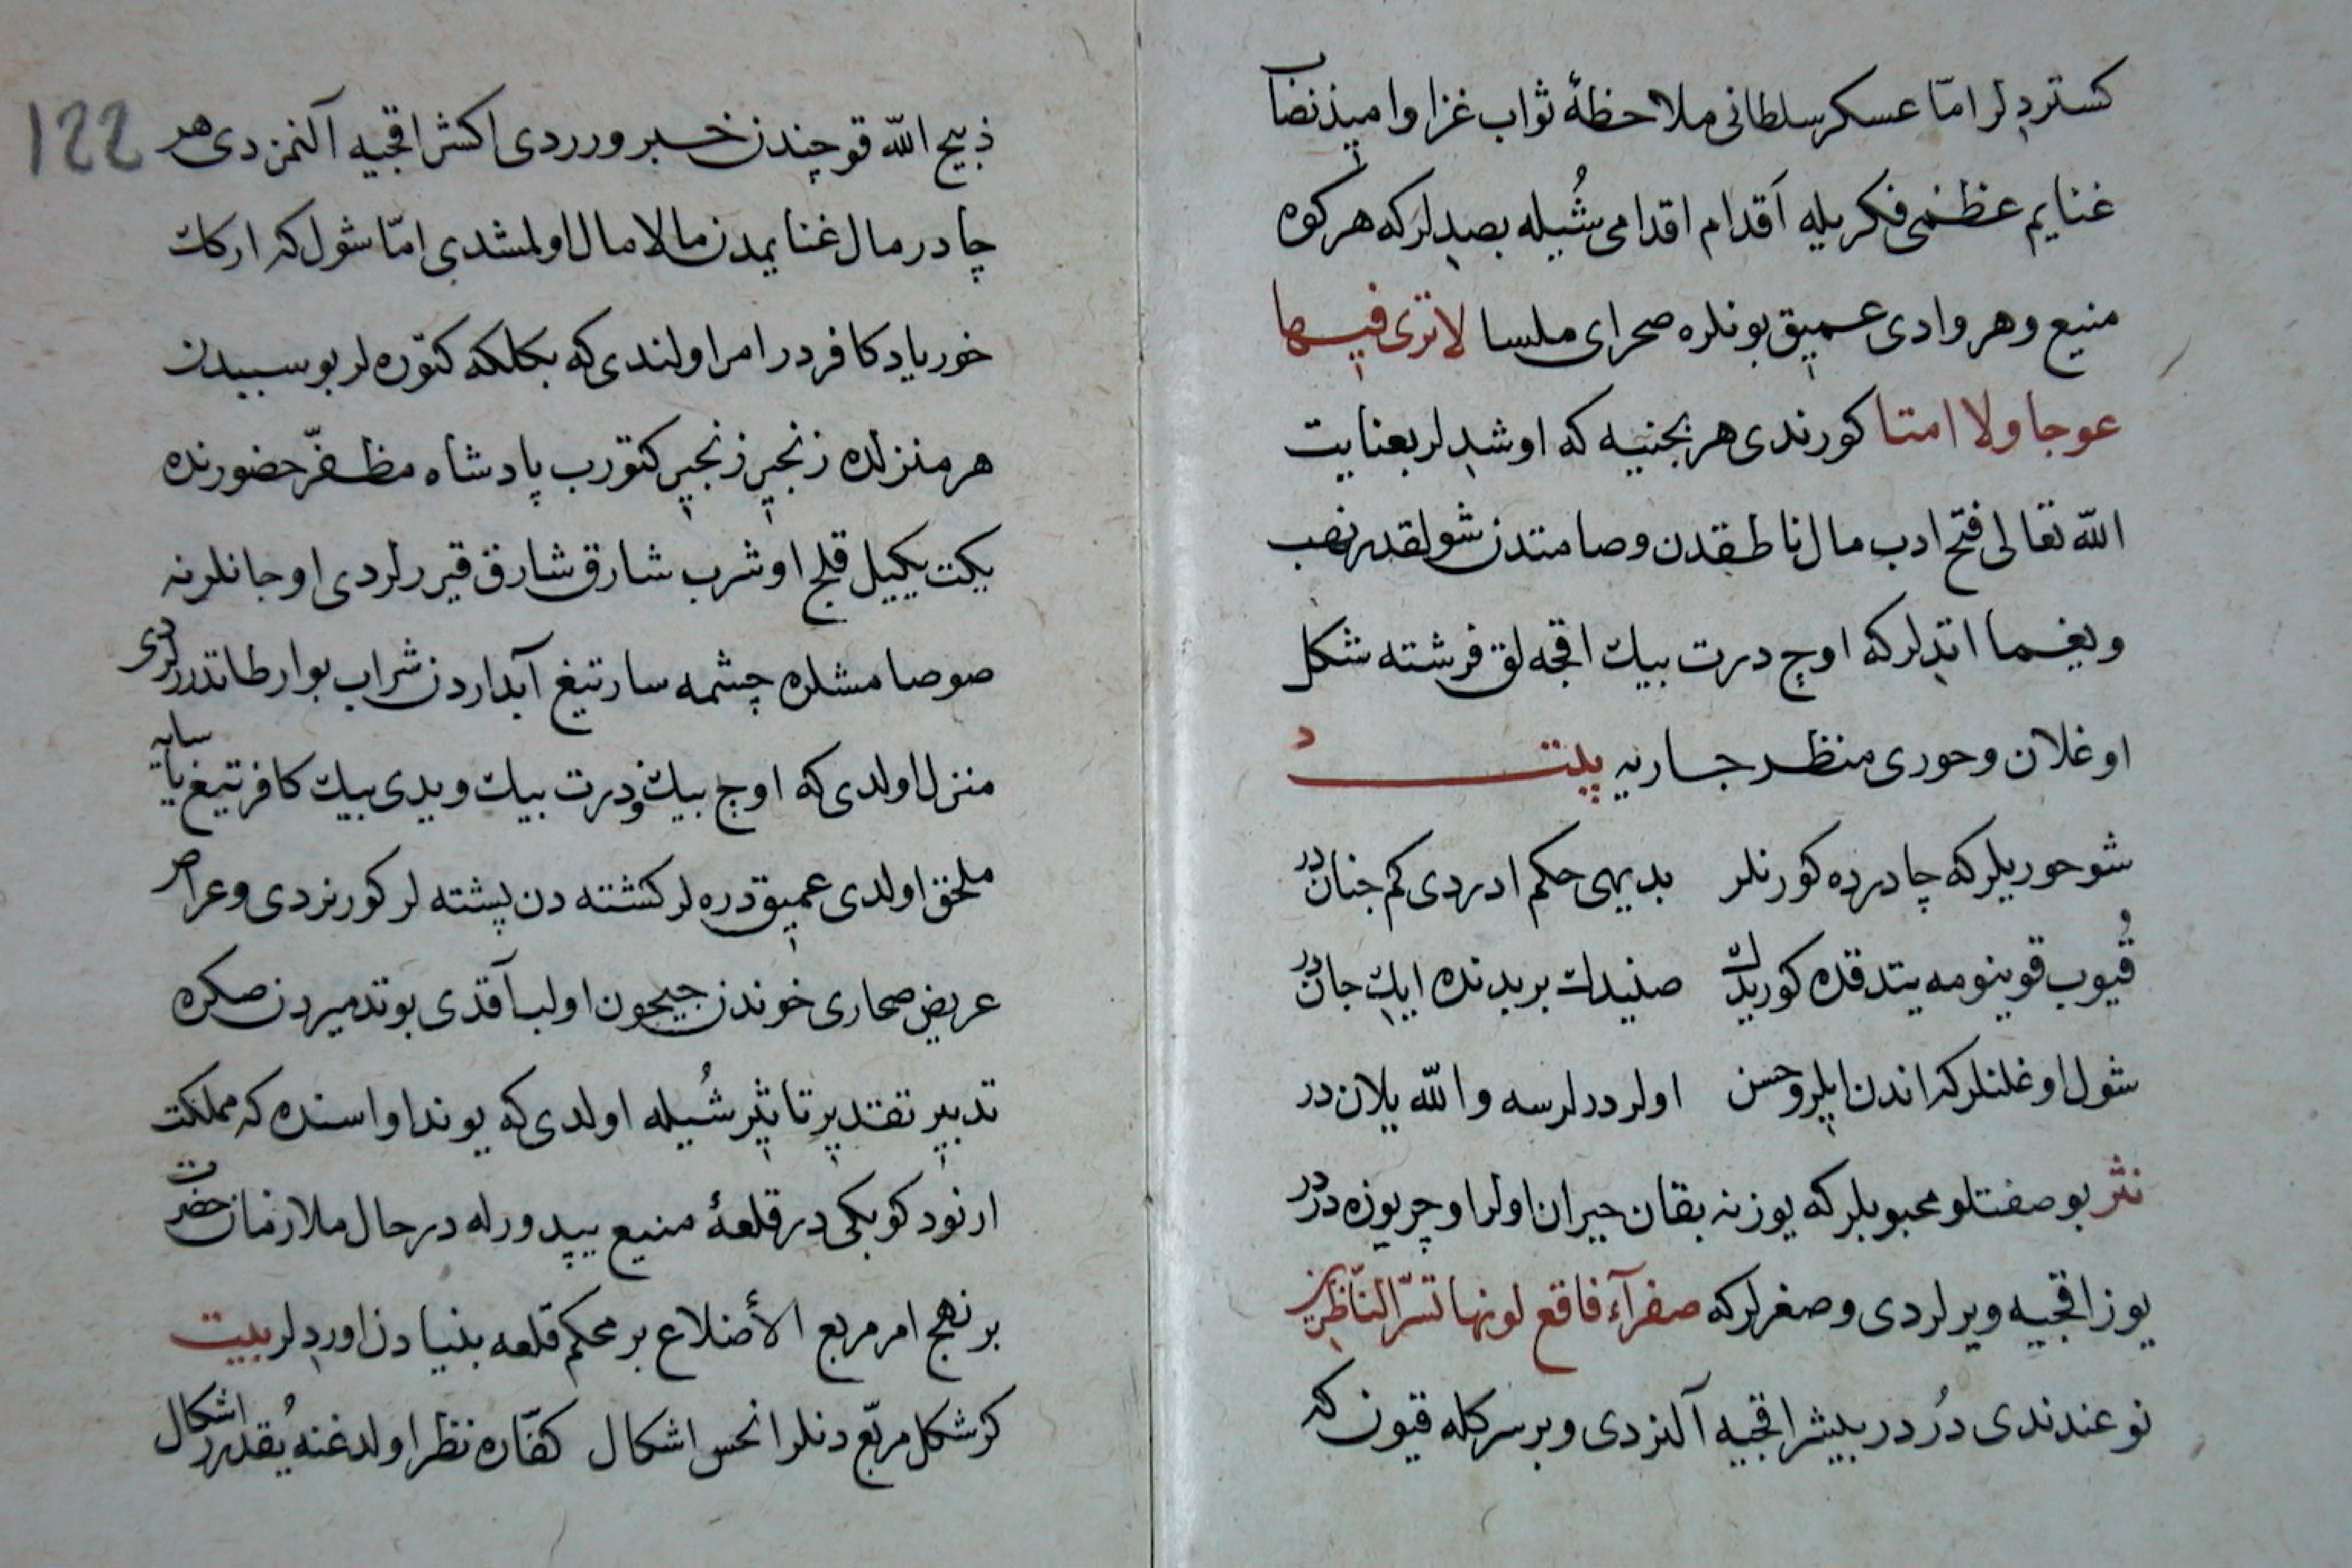 كستردلر امّا عسكر سلطانى ملاحظهٔ ثواب غزا واميد نصاب
غنايم عظمى فكريله اَقدام اقدامى شُيله بصدلر كه هر كوه
منيع وهر وادى عميق بونلره صحراى ملسا لا ترى فيها
عوجا ولا امتا كورندى هر بجنيه كه اوشدلر بعنايت
الله تعالى فتح ادب مال ناطقدن وصامتدن شولقدر نهب
ويغما اتدلر كه اوچ درت بيك اقجه لق فرشته شكل
اوغلان وحورى منظر جاريه بيت
شو حوريلر كه چادرده كورنلر بديهى حكم ادردى كم جناندر
قُيوب قوينومه يتدقده كوريدك صنيدك بر بدنده ايك جاندر
شول اوغلنلر كه اندن ايلرو حسن اولر درلرسه والله يلاندر
نثر بو صفتلو محبوبلر كه يوزنه بقان حيران اولر اوچر يوزه دردر
يوز اقجيه ويرلردى وصغرلر كه صفرآء فاقع لونها تسرّ النّاظرين
نوعندندى دُردر بيشر اقجيه آلنزدى وبر سر كله قيون كه
122
ذبيح الله قوچندن خبر ويرردى اكشر اقجيه آلنمزدى هر
چادر مال غنايمدن مالامال اولمشدى امّا شول كه اركك
خورياد كافردر امر اولندى كه بكلكه كتوره لر بو سببدن
هر منزلده زنجير زنجير كتورب پادشاه مظفّر حضورنده
يكت يكيل قلج اوشرب شارق شارق قيررلردى اوجانلرنه
صوصامشلره چشمه سار تيغ آبداردن شراب بوار طاتدررلردى
منزل اولدى كه اوج بيك ودرت بيك ويدى بيك كافر تيغ سايه يايه
ملحق اولدى عميق دره لر كشته دن پشته لر كورنردى وعراض
عريض صحارى خوندن جيحون اولب آقدى بو تدميردن صكره
تدبير تقدير تاثير شُيله اولدى كه يوندا واسنده كه مملكت
ارنود كوبكى در قلعهٔ منيع يپدورله درحال ملازمان حضرت
بر نهج امر مربع الأضلاع بر محكم قلعه بنيادن اوردلر بيت
كر شكل مربّع دنلر انحس اشكال كفّاره نظر اولدغنه يُقدر اشكال